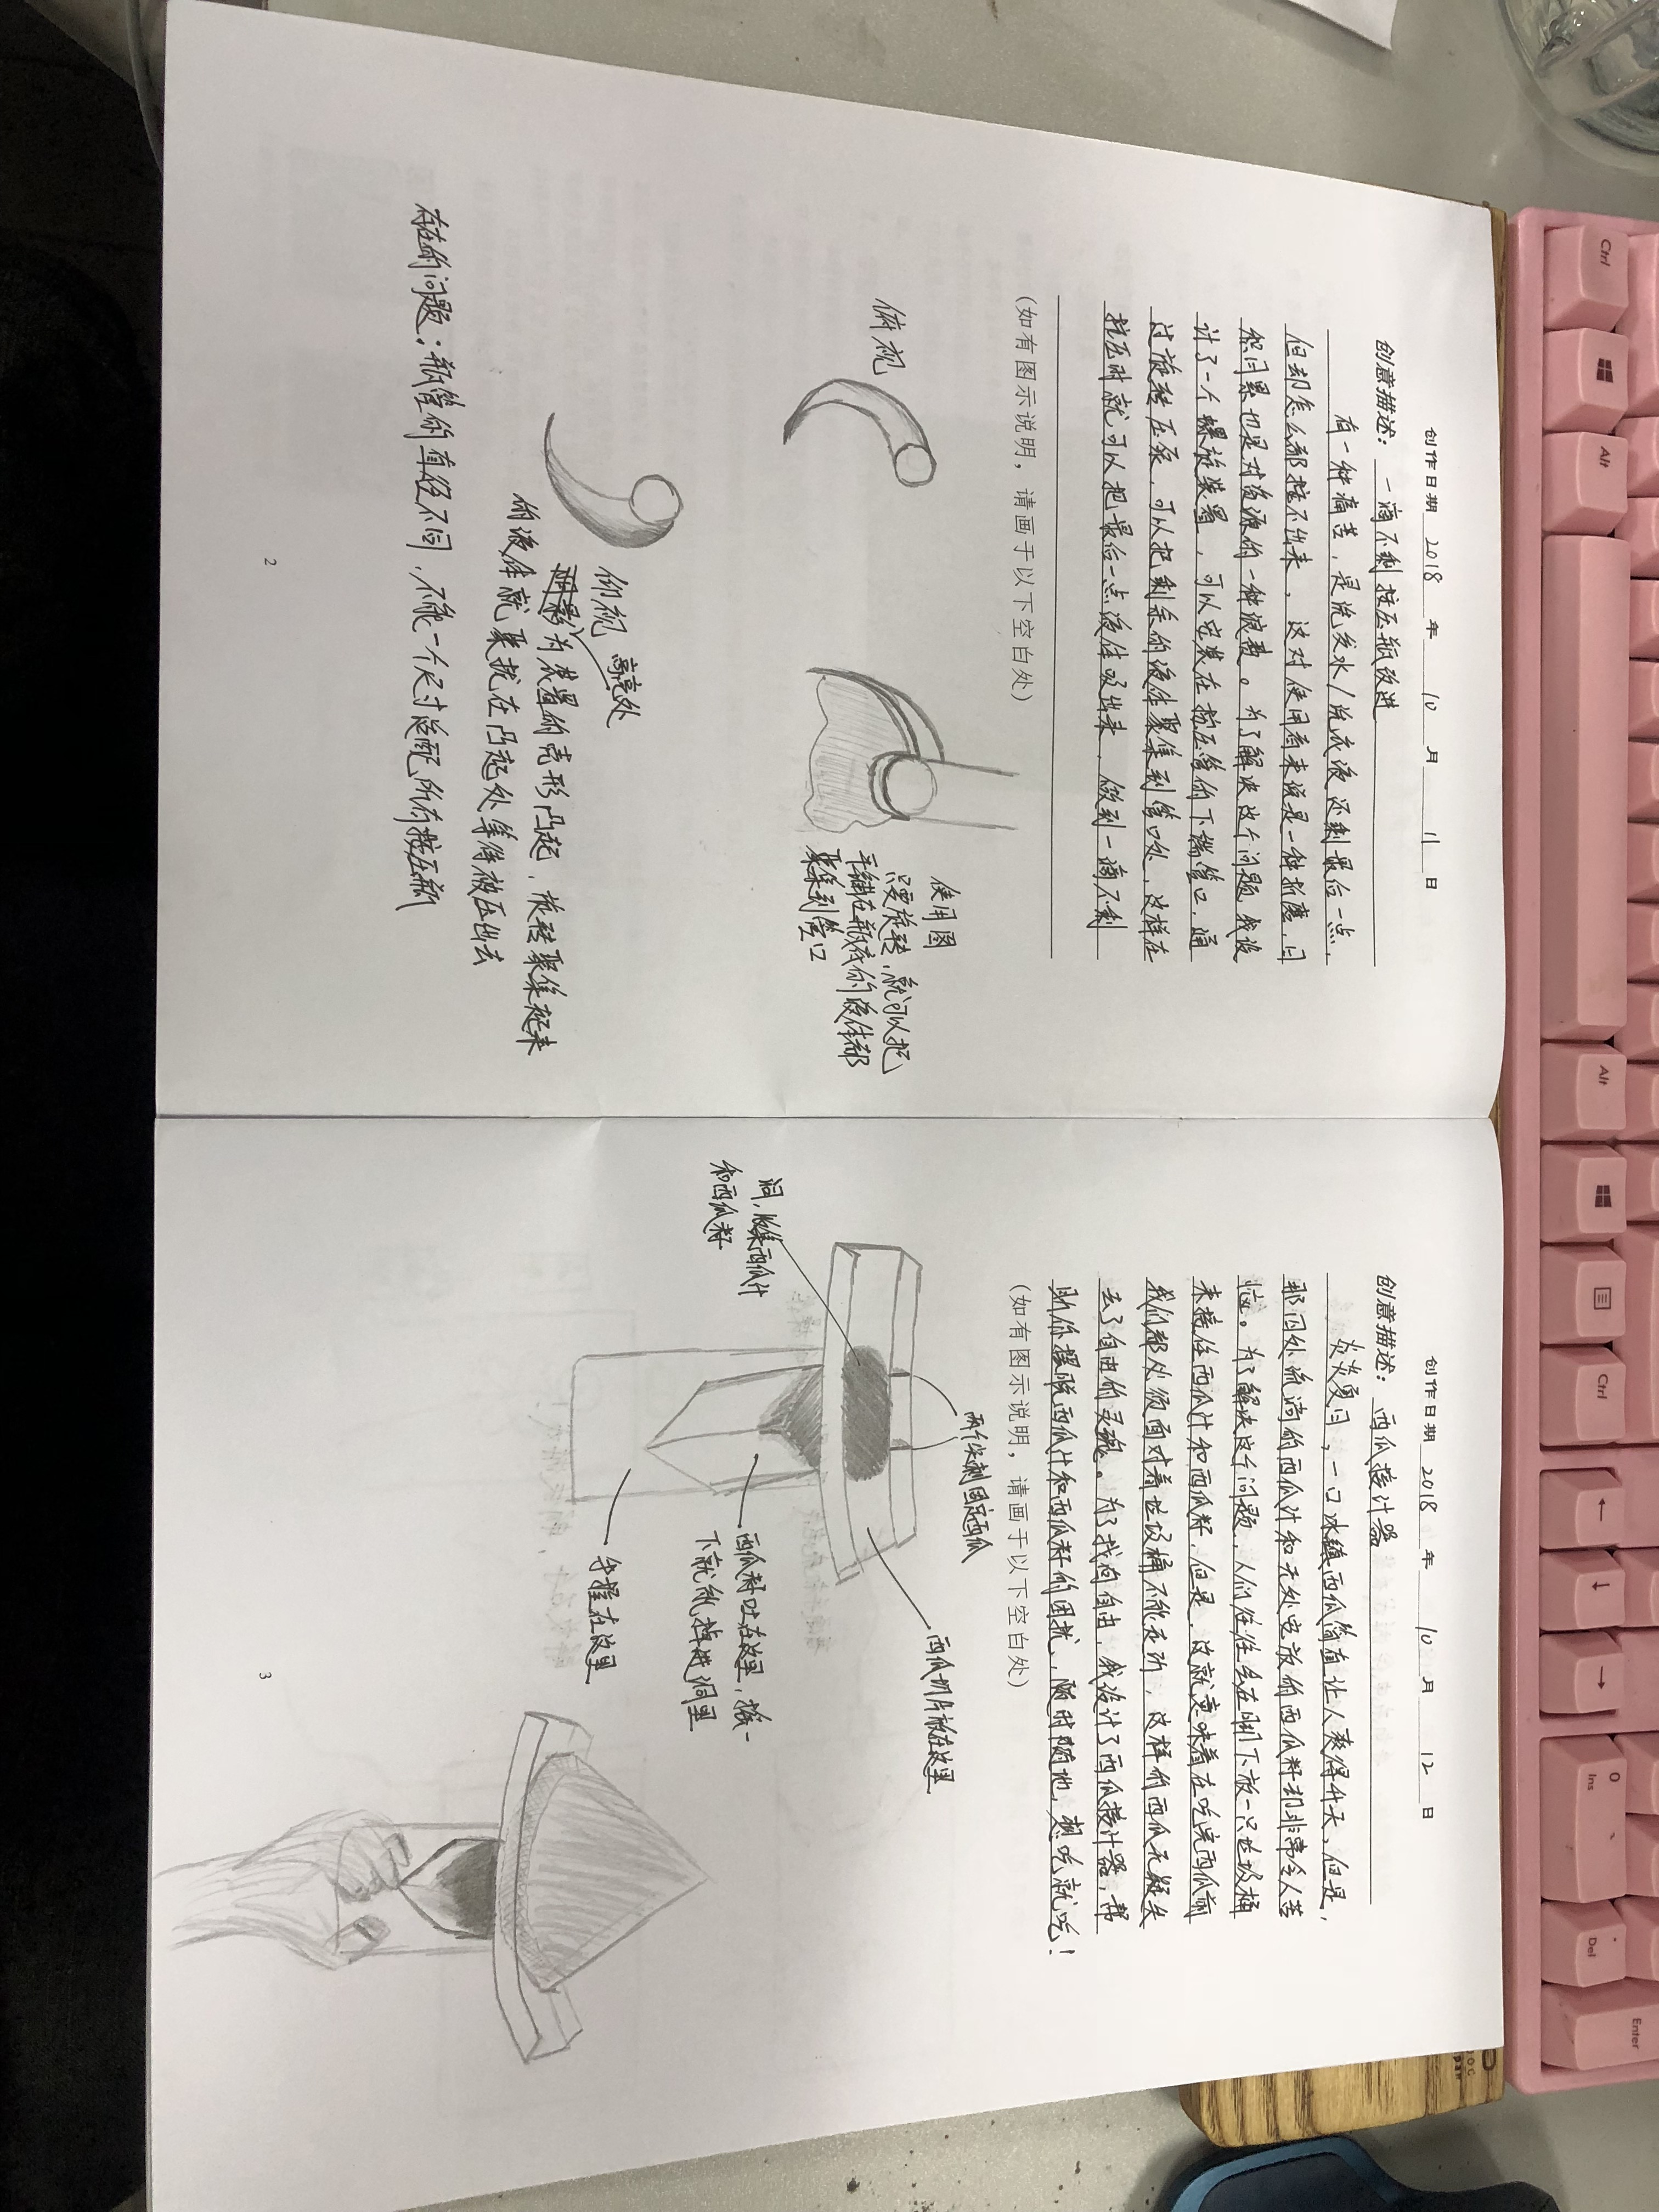 创作日期 2018 年 10 月 11 日
创意描述：一滴不剩按压瓶改进
有一种痛苦，是洗发水/洗衣液还剩最后一点，
但却怎么都按不出来，这对使用者来说是一种折磨，日
积月累也是对资源的一种浪费。为了解决这个问题，我设
计了一个螺旋装置，可以安装在按压管的下端管口，通
过旋转压泵，可以把剩余的液体聚集到管口处，这样在
按压时就可以把最后一点液体吸出来，做到一滴不剩
（如有图示说明，请画于以下空白处）
俯视
使用图
只要旋转，就可以把
平铺在瓶底的液体都
聚集到管口
仰视 高亮处
阴影为装置的壳形凸起，旋转聚集起来
的液体就聚拢在凸起处等待被压出去
存在的问题：瓶管的直径不同，不能一个尺寸适配所有按压瓶
2
创作日期 2018 年 10 月 12 日
创意描述：西瓜接汁器
炎炎夏日，一口冰镇西瓜简直让人爽得升天，但是，
那四处流淌的西瓜汁和无处安放的西瓜籽却非常令人苦
恼。为了解决这个问题，人们往往会在脚下放一只垃圾桶
来接住西瓜汁和西瓜籽，但是，这就意味着在吃完西瓜前
我们都必须面对着垃圾桶不能走动，这样的西瓜无疑失
去了自由的灵魂。为了找回自由，我设计了西瓜接汁器，帮
助你摆脱西瓜汁和西瓜籽的困扰，随时随地，想吃就吃！
（如有图示说明，请画于以下空白处）
两个尖刺固定西瓜
西瓜切片放在这里
洞，收集西瓜汁
和西瓜籽
西瓜籽吐在这里，摇一
下就能掉进洞里
手握在这里
3
Ctrl
Alt
Alt
Ctrl
←
↓
→
0
Ins
.
Del
Enter